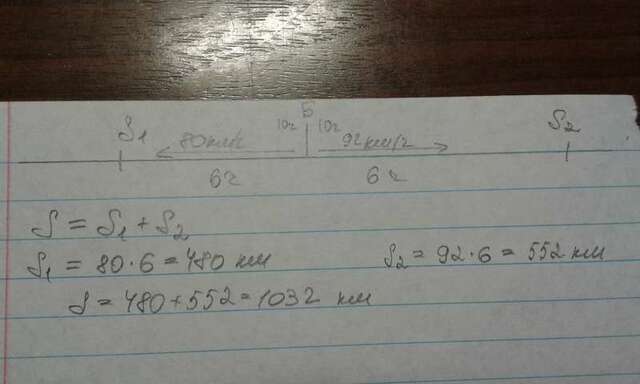 Б
S₁ 80км/ч 10ч 10ч 92км/ч S₂
6ч 6ч
S = S₁ + S₂
S₁ = 80·6 = 480 км S₂ = 92·6 = 552 км
S = 480 + 552 = 1032 км